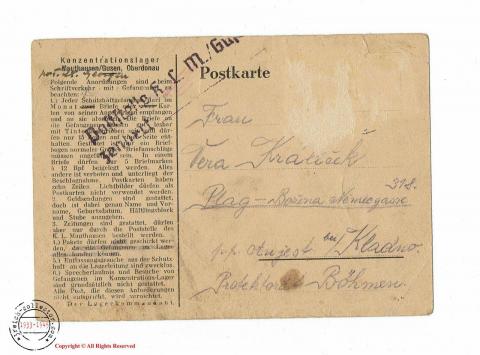 Konzentrationslager
Mauthausen/Gusen, Oberdonau
Folgende Anordnungen sind beim
Schriftverkehr mit Gefangenen zu
beachten:
1.) Jeder Schutzhäftling darf im
Monat Briefe Kar-
ten von seinen Angehörigen empfangen
und an sie absenden. Die Briefe an
die Gefangenen müssen gut lesbar
mit Tinte sein und dürfen
nur 15 Zeilen auf einer Seite ent-
halten. Gestattet ist nur ein Brief-
bogen normaler Größe. Briefumschläge
müssen ungefüttert sein. In einem
Briefe dürfen nur 5 Briefmarken
à 12 Rpf beigelegt werden. Alles
andere ist verboten und unterliegt der
Beschlagnahme. Postkarten haben
zehn Zeilen. Lichtbilder dürfen als
Postkarten nicht verwendet werden.
2. Geldsendungen sind gestattet,
doch ist dabei genau Name und Vor-
name, Geburtsdatum, Häftlingsblock
und Stube anzugeben.
3. Zeitungen sind gestattet, dürfen
aber nur durch die Poststelle des
K. L. Mauthausen bestellt werden.
4.) Pakete dürfen nicht geschickt
werden, da die Gefangenen im Lager
alles kaufen können.
5.) Entlassungsgesuche aus der Schutz-
haft an die Lagerleitung sind zwecklos.
6.) Sprecherlaubnis und Besuche von
Gefangenen im Konzentrations-Lager
sind grundsätzlich nicht gestattet.
Alle Post, die diesen Anforderungen
nicht entspricht, wird vernichtet.
Der Lagerkommandant.
Poststelle K. L. M./Gus
Postkarte
Frau
Vera
318.
Prag - Božena
p.p. bei Kladno.
Protektorat Böhmen.
1933-1945
Copyright © All Rights Reserved